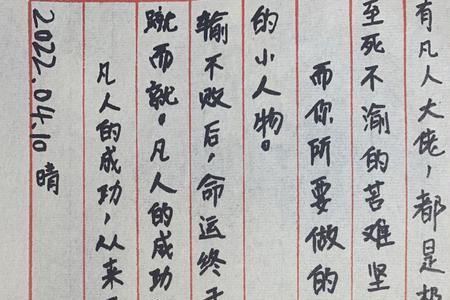 有凡人大佬，都是
至死不渝的苦难坚
而你所要做的
的小人物。
输不败后，命运终
蹴而就。凡人的成功
凡人的成功，从来
2022.04.10 晴